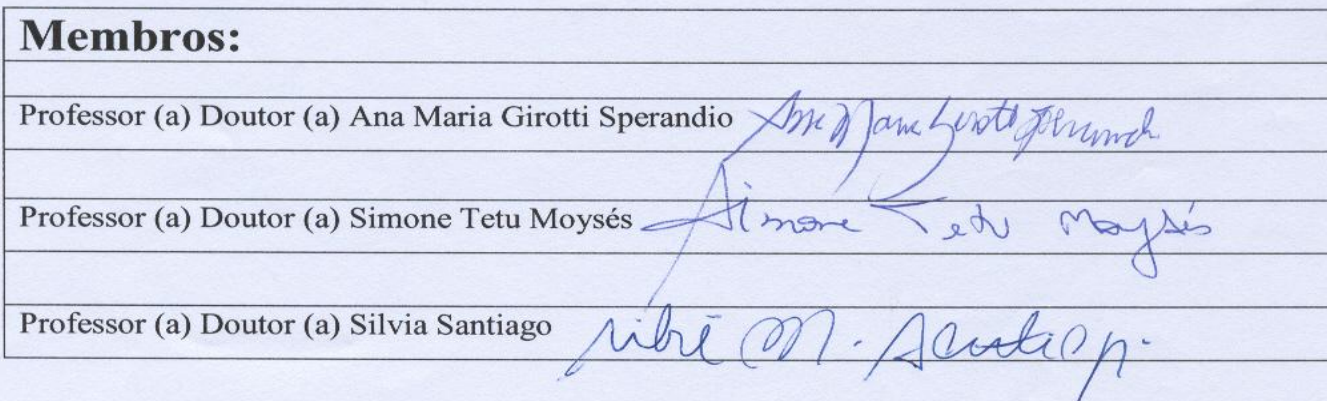 Membros:
Professor (a) Doutor (a) Ana Maria Girotti Sperandio Ana Maria Girotti Sperandio
Professor (a) Doutor (a) Simone Tetu Moysés Simone Tetu Moysés
Professor (a) Doutor (a) Silvia Santiago Silvia M. Santiago